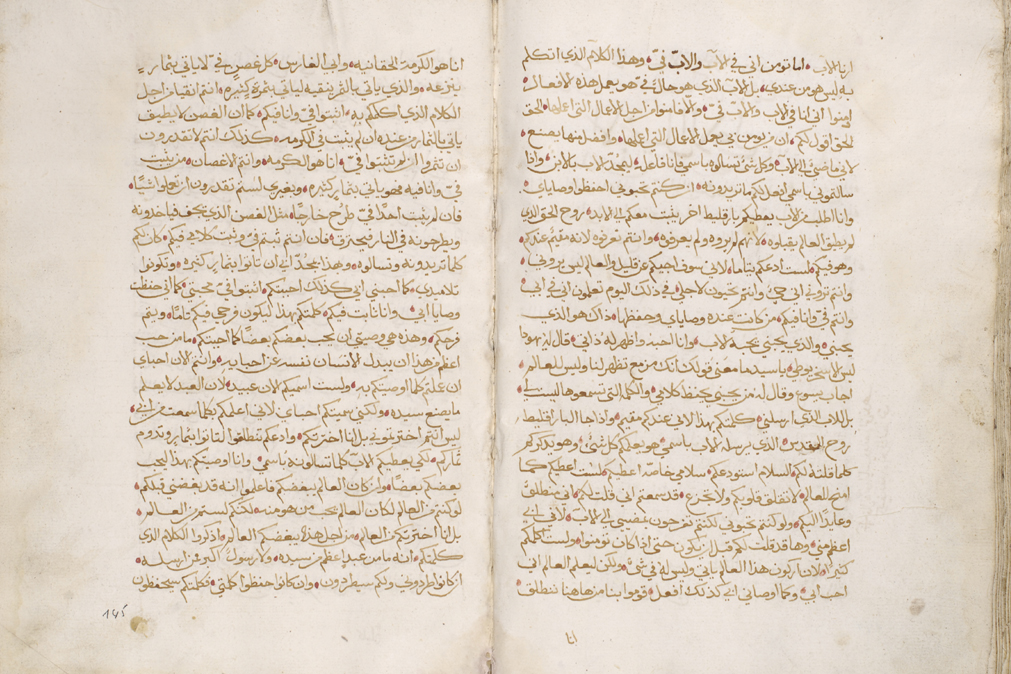 ارنا الاب اما تومن اني في الاب والاب في وهذا الكلام الذي اتكلم
به ليس هو من عندي بل الاب الذي هو حال في هو يعمل هذه الافعال
امنوا اني انا في الاب والاب في والا فامنوا من اجل الاعمال التي اعملها الحق
الحق اقول لكم ان من يومن بي يعمل الاعمال التي اعملها وافضل منها يصنع
لاني ماضي الي الاب وكل شي تسالوه باسمي فانا فاعله ليتمجد الاب بالابن واذا
سالتموني باسمي افعل لكم ما تريدونه ان كنتم تحبوني احفظوا وصاياي
وانا اطلب من الاب يعطيكم بارقليط اخر يثبت معكم الي الابد روح الحق الذي
لم يطيق العالم يقبلوه لانهم لم يروه ولم يعرفوه وانتم تعرفوه لانه مقيم عندكم
وهو فيكم لست ادعكم يتاما لاني سوف اجيكم عن قليل والعالم ليس يروني
وانتم تروني اني حي وانتم تحيون لاجلي في ذلك اليوم تعلمون اني في ابي
وانتم في وانا فيكم من كانت عنده وصاياي وحفظها ذاك هو الذي
يحبني والذي يحبني يحبه الاب وانا احبه واظهر له ذاتي قال له يهودا
ليس الاسخريوطي يا سيد ما معني قولك انك مزمع تظهر لنا وليس للعالم
اجاب يسوع وقال له من يحبني يحفظ كلامي والكلمة التي تسمعوها ليست لي
بل للاب الذي ارسلني كلمتكم بهذا لاني عندكم مقيم واذا جا البارقليط
روح القدس الذي يرسله الاب باسمي هو يعلمكم كل شي وهو يذكركم
كلما قلته لكم السلام استودعكم سلامي خاصة اعطيكم لست اعطيكم كما
امنح للعالم لا تقلق قلوبكم ولا تجزع قد سمعتم اني قلت لكم اني منطلق
وعايدا اليكم ولو كنتم تحبوني لكنتم تفرحون بمضيي الي الاب لان ابي
اعظم مني وها قد قلت لكم قبل ان يكون حتي اذا كان تومنوا ولست اكلمكم
كثيرا لان اركون هذا العالم ياتي وليس له في شي ولكن ليعلم العالم اني
احب ابي وكما اوصاني ابي كذلك افعل قوموا بنا من هاهنا ننطلق
انا
انا هو الكرمة الحقانيه وابي الغارس كل غصن في لا ياتي بثمار
ينزعه والذي ياتي بالثمر ينقيه لياتي بثمرة كثيره وانتم انقيا من اجل
الكلام الذي كلمتكم به اثبتوا في وانا فيكم كما ان الغصن لا يطيق
ياتي بالثمار من عنده ان لم يثبت في الكرمه كذلك انتم لا تقدرون
ان تثمروا ان لم تثبتوا في انا هو الكرمه وانتم الاغصان من يثبت
في وانا فيه فهو ياتي بثمار كثيره وبغيري لستم تقدرون ان تعملوا شيا
فان لم يثبت احدا في طرح خارجا مثل الغصن الذي يجف فياخدونه
ويطرحونه في النار فيحترق فان انتم ثبتم في وثبت كلامي فيكم كان لكم
كلما تريدونه وتسالوه وهذا يمجد ابي ان تاتوا بثمار كثيره وتكونوا
تلاميدي كما احبني ابي كذلك احببتكم اثبتوا في محبتي كما اني حفظت
وصايا ابي وانا ثابت فيكم كلمتكم بهذا ليكون فرحي فيكم تاما ويتم
فرحكم وهذه هي وصيتي ان يحب بعضكم بعضا كما احببتكم ما من حب
اعظم من هذا ان يبدل الانسان نفسه عن احبايه وانتم الان احباي
ان عملتم كلما اوصيتكم به ولست اسميكم الان عبيد لان العبد لا يعلم
ما يصنع سيده ولكني سميتكم احباي لاني اعلمكم بكلما سمعت من ابي
ليس انتم اخترتموني بل انا اخترتكم وادعكم تنطلقوا لتاتوا بثمار وتدوم
ثماركم لكي يعطيكم الاب كلما تسالونه باسمي وانا اوصيتكم بهذا ليحب
بعضكم بعضا وان كان العالم يبغضكم فاعلموا انه قد بغضني قبلكم
لو كنتم من العالم لكان العالم يحب من هو منه لكنكم لستم من العالم
بل انا اخترتكم من العالم من اجل هذا يبغضكم العالم واذكروا الكلام الذي
كلمتكم انه ما من عبد اعظم من سيده ولا رسول اكبر من ارسله
ان كانوا طردوني ولكم سيطردون وان كانوا حفظوا كلمتي فكلمتكم سيحفظون
145